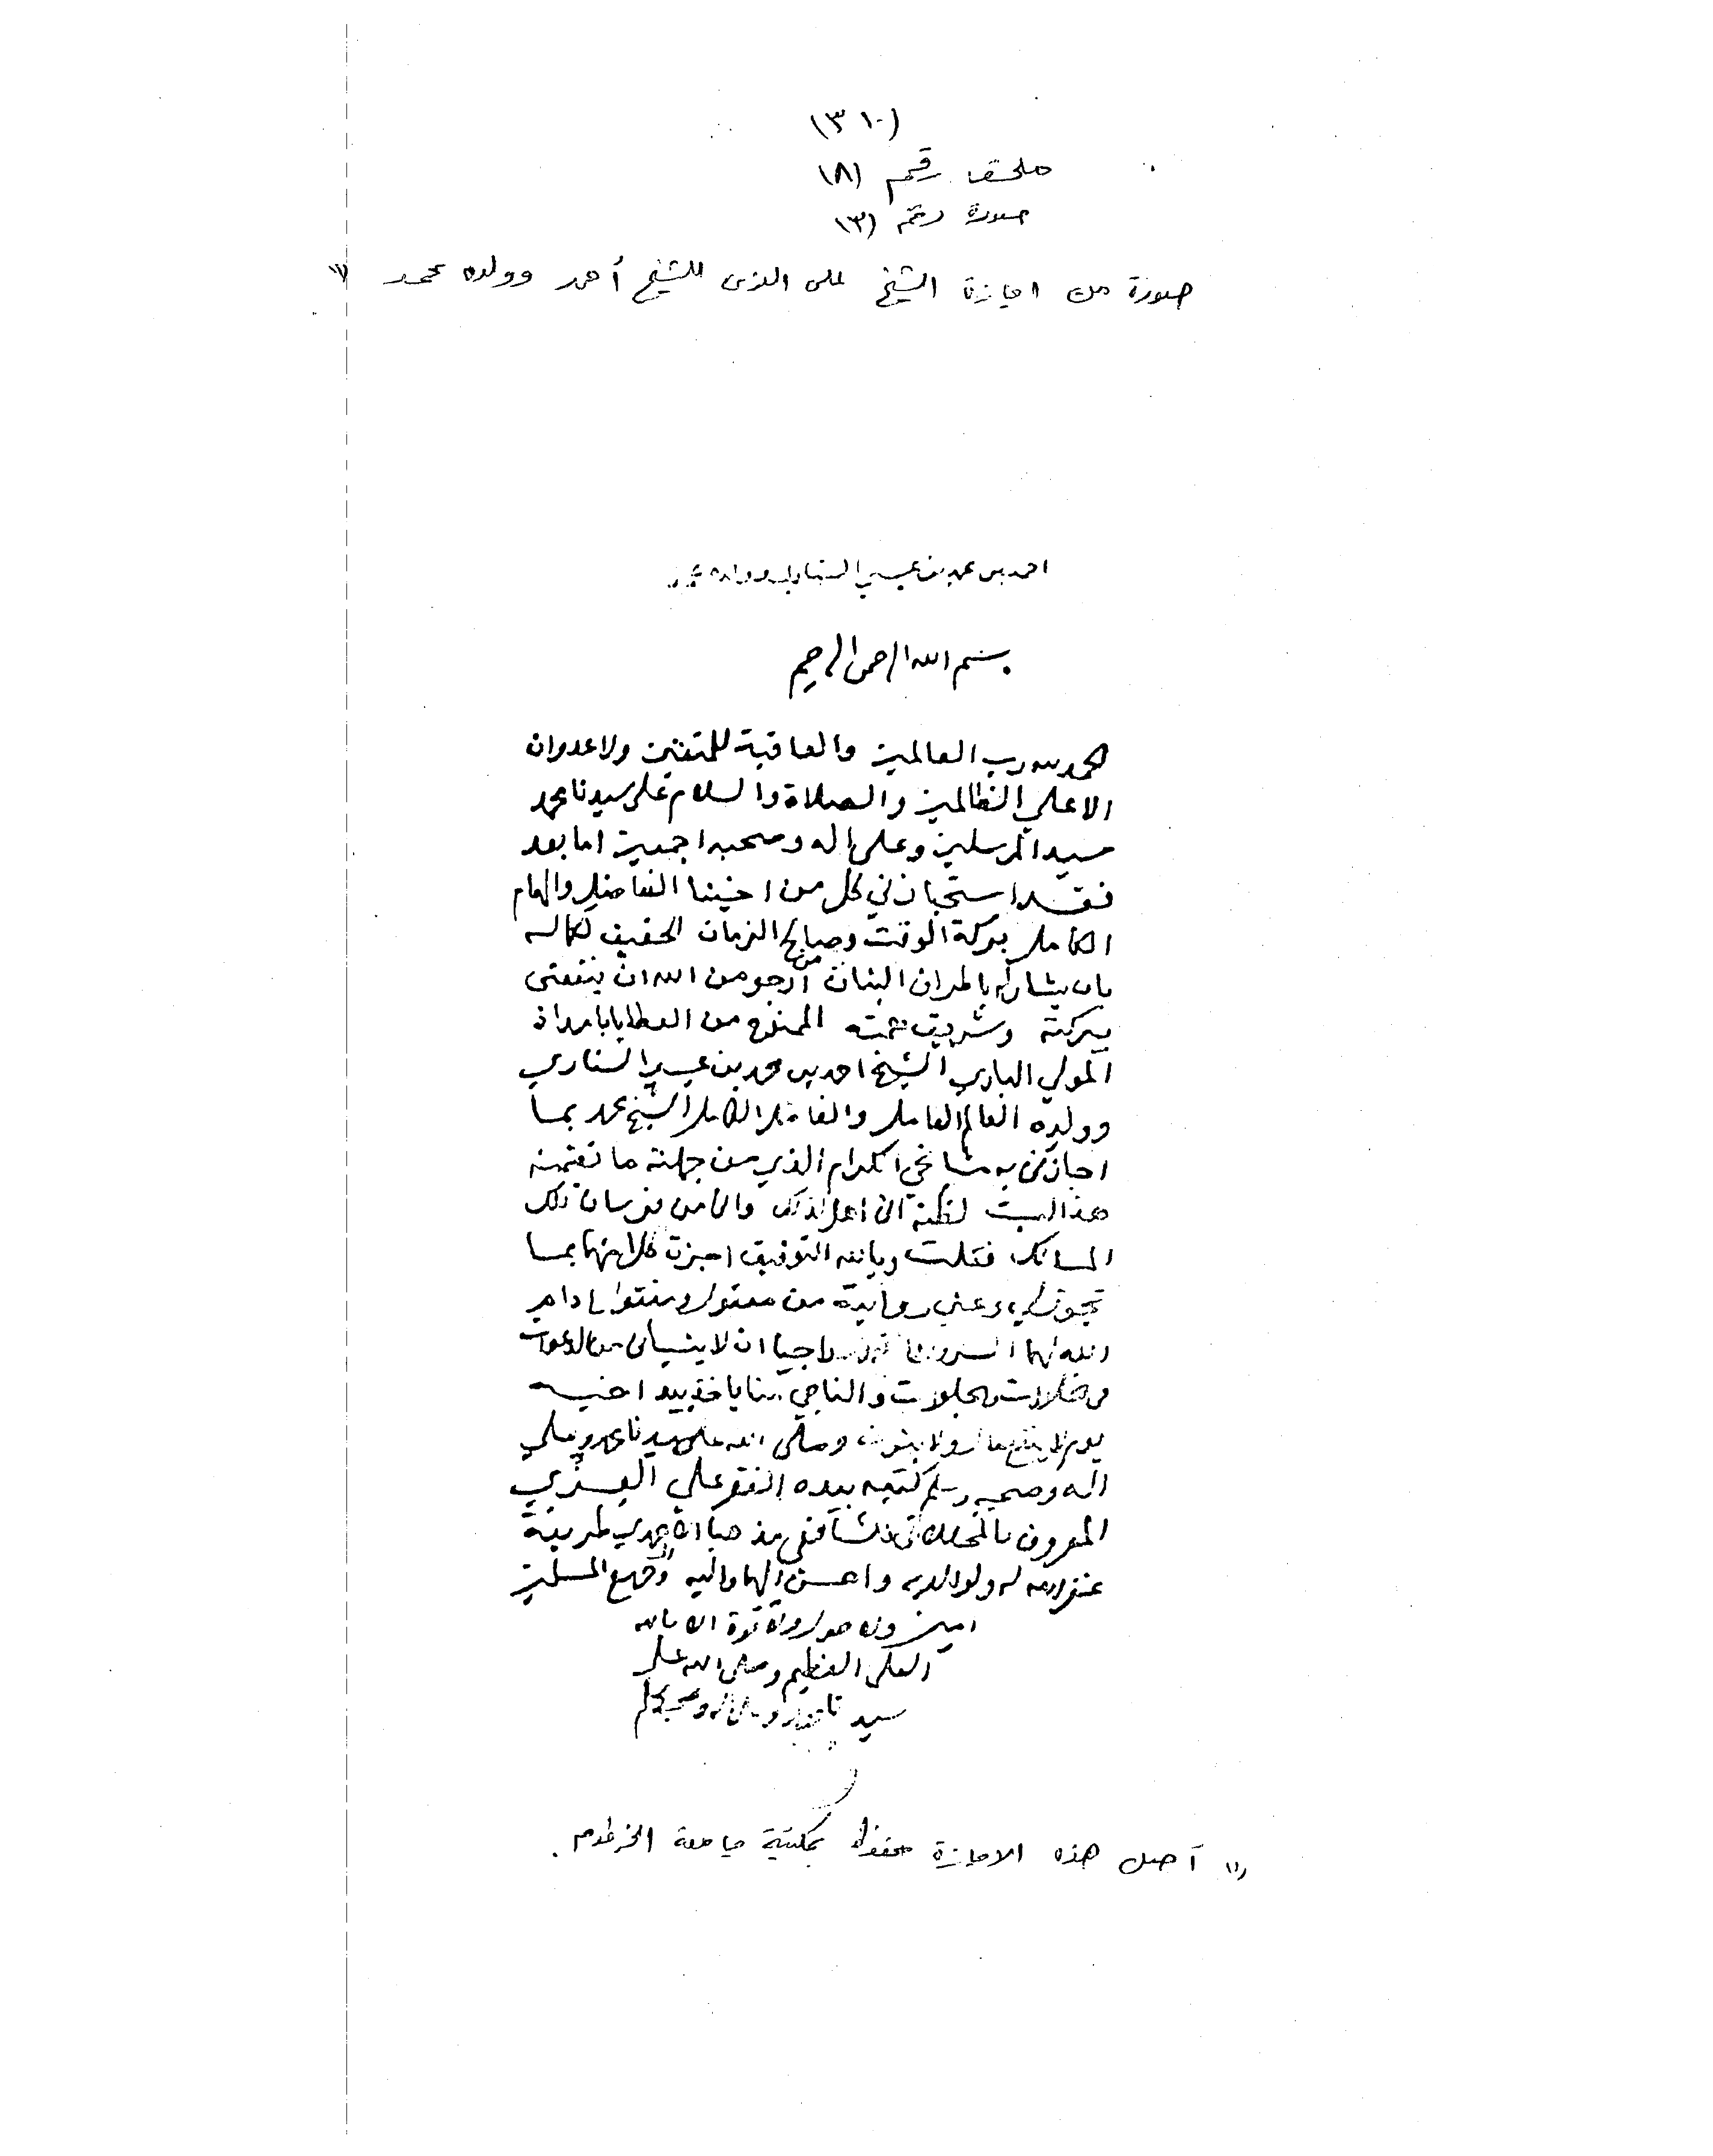 (٣١٠)
ملحق رقم (٨)
صورة رقم (٣)
صورة من اجازة الشيخ على للشيخ أحمد وولده محمد (١)
احمد بن محمد بن عيسي وولده محمد
بسم الله الرحمن الرحيم
الحمد لله رب العالمين والعاقبة للمتقين ولا عدوان
الا علي الظالمين والصلاة والسلام على سيدنا محمد
سيد المرسلين وعلى اله وصحبه اجمعين اما بعد
فقد استجازني كل من اخينا الفاضل والهمام
الكامل بركة الوقت وصالح الزمان الحقيق لكماله
بان يشار له باطراف البنان من ارجو من الله ان ينفعني
ببركته وشريف همته الممنوح من العطايا بامداد
المولي الباري الشيخ احمد بن محمد بن عيسي السناري
وولده العالم العامل والفاضل الكامل الشيخ محمد بما
اجازني به مشايخي الكرام الذي من جملته ما تضمنه
هذا الثبت لظنه اني اهل لذلك واني من فرسان تلك
المسالك فقلت وبالله التوفيق اجزت كلا منهما بما
تجوز لي وعني رواية من معقول ومنقول ادام
الله لهما راجيا ان لا ينسياني من الدعوات
في الخلوات والجلوات والناجي منا ياخذ بيد اخيه
يوم لا ينفع مال ولا بنون وصلى الله على سيدنا محمد وعلي
اله وصحبه وسلم كتبه بيده الفقير علي
المعروف الشافعي مذهبا الاحمدي طريقة
غفر الله له ولوالديه واحسن اليهما واليه وجميع المسلمين
امين ولا حول ولا قوة الا بالله
العلى العظيم وصلى الله على
سيدنا محمد وعلى اله وصحبه وسلم
(١) أصل هذه الاجازة محفوظ بمكتبة جامعة الخرطوم .